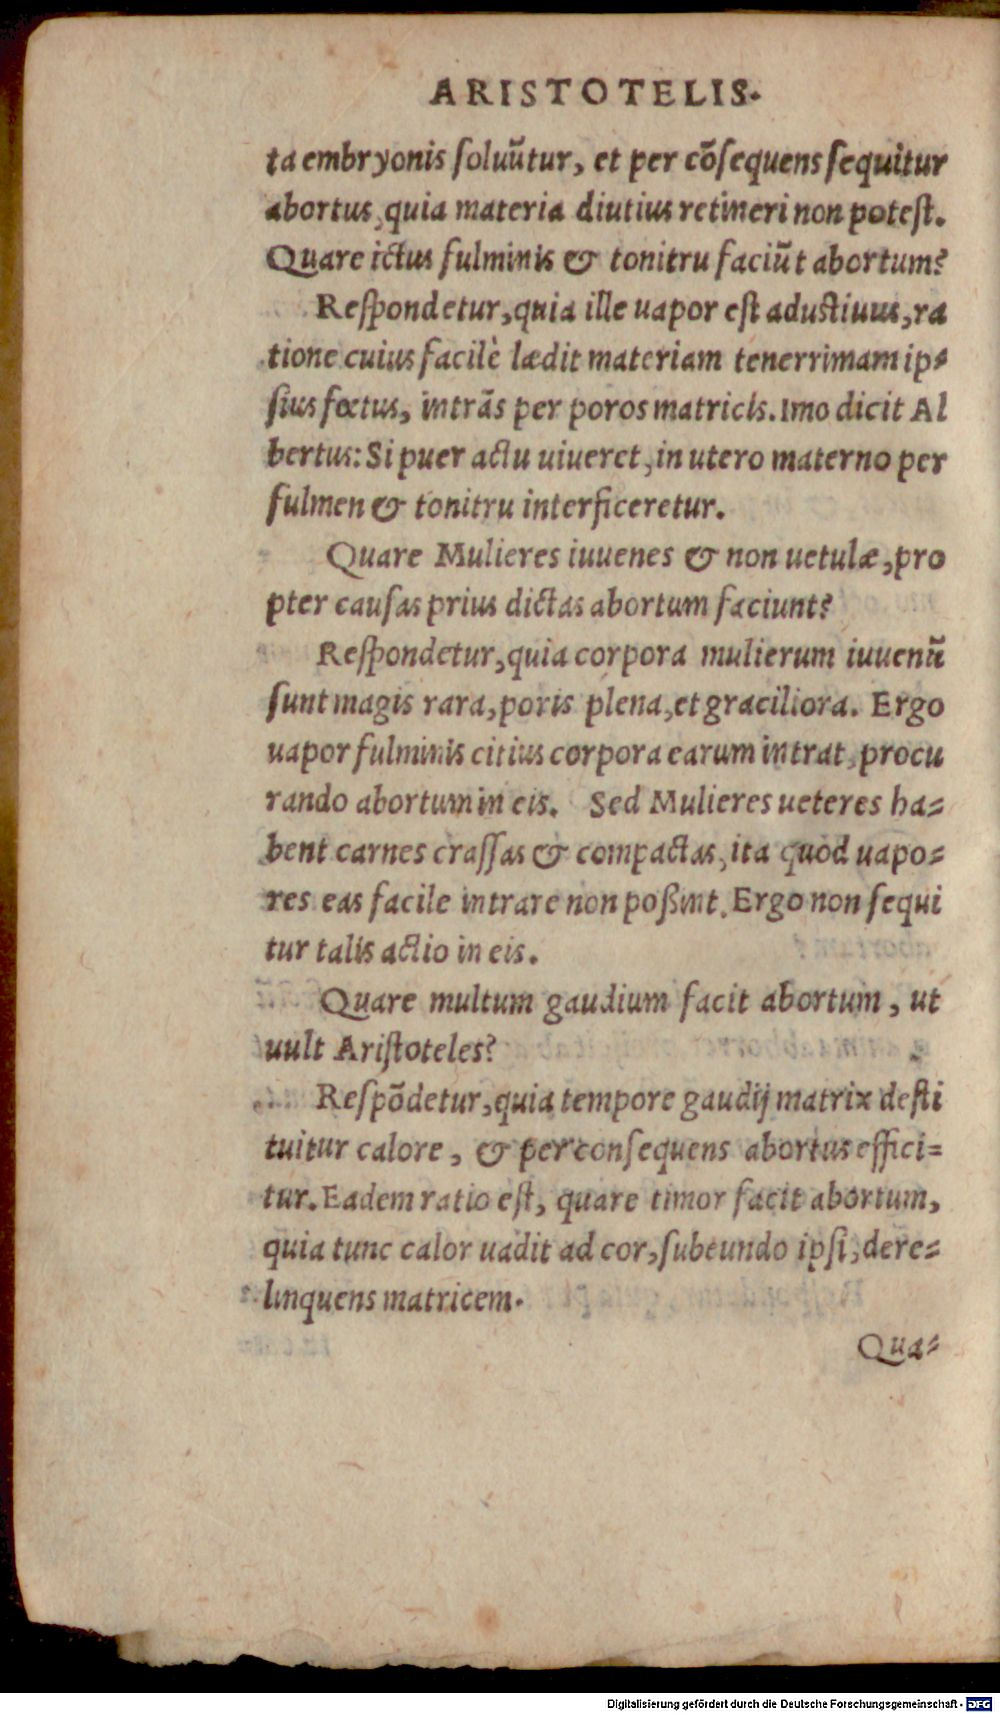 ARISTOTELIS.
ta embryonis soluũtur, et per cõsequens sequitur
abortus, quia materia diutius retineri non potest.
Quare ictus fulminis & tonitru faciũt abortum?
Respondetur, quia ille uapor est adustiuus, ra
tione cuius facilè lædit materiam tenerrimam ip=
sius fœtus, intrãs per poros matricis. Imo dicit Al
bertus: Si puer actu uiueret, in utero materno per
fulmen & tonitru interficeretur.
Quare Mulieres iuuenes & non uetulæ, pro
pter causas prius dictas abortum faciunt?
Respondetur, quia corpora mulierum iuuenũ
sunt magis rara, poris plena, et graciliora. Ergo
uapor fulminis citius corpora earum intrat, procu
rando abortum in eis. Sed Mulieres ueteres ha=
bent carnes crassas & compactas, ita quod uapo=
res eas facile intrare non poßint. Ergo non sequi
tur talis actio in eis.
Quare multum gaudium facit abortum, ut
uult Aristoteles?
Respõdetur, quia tempore gaudij matrix desti
tuitur calore, & per consequens abortus effici=
tur. Eadem ratio est, quare timor facit abortum,
quia tunc calor uadit ad cor, subeundo ipsi, dere=
linquens matricem.
Qua=
Digitalisierung gefördert durch die Deutsche Forschungsgemeinschaft - DFG